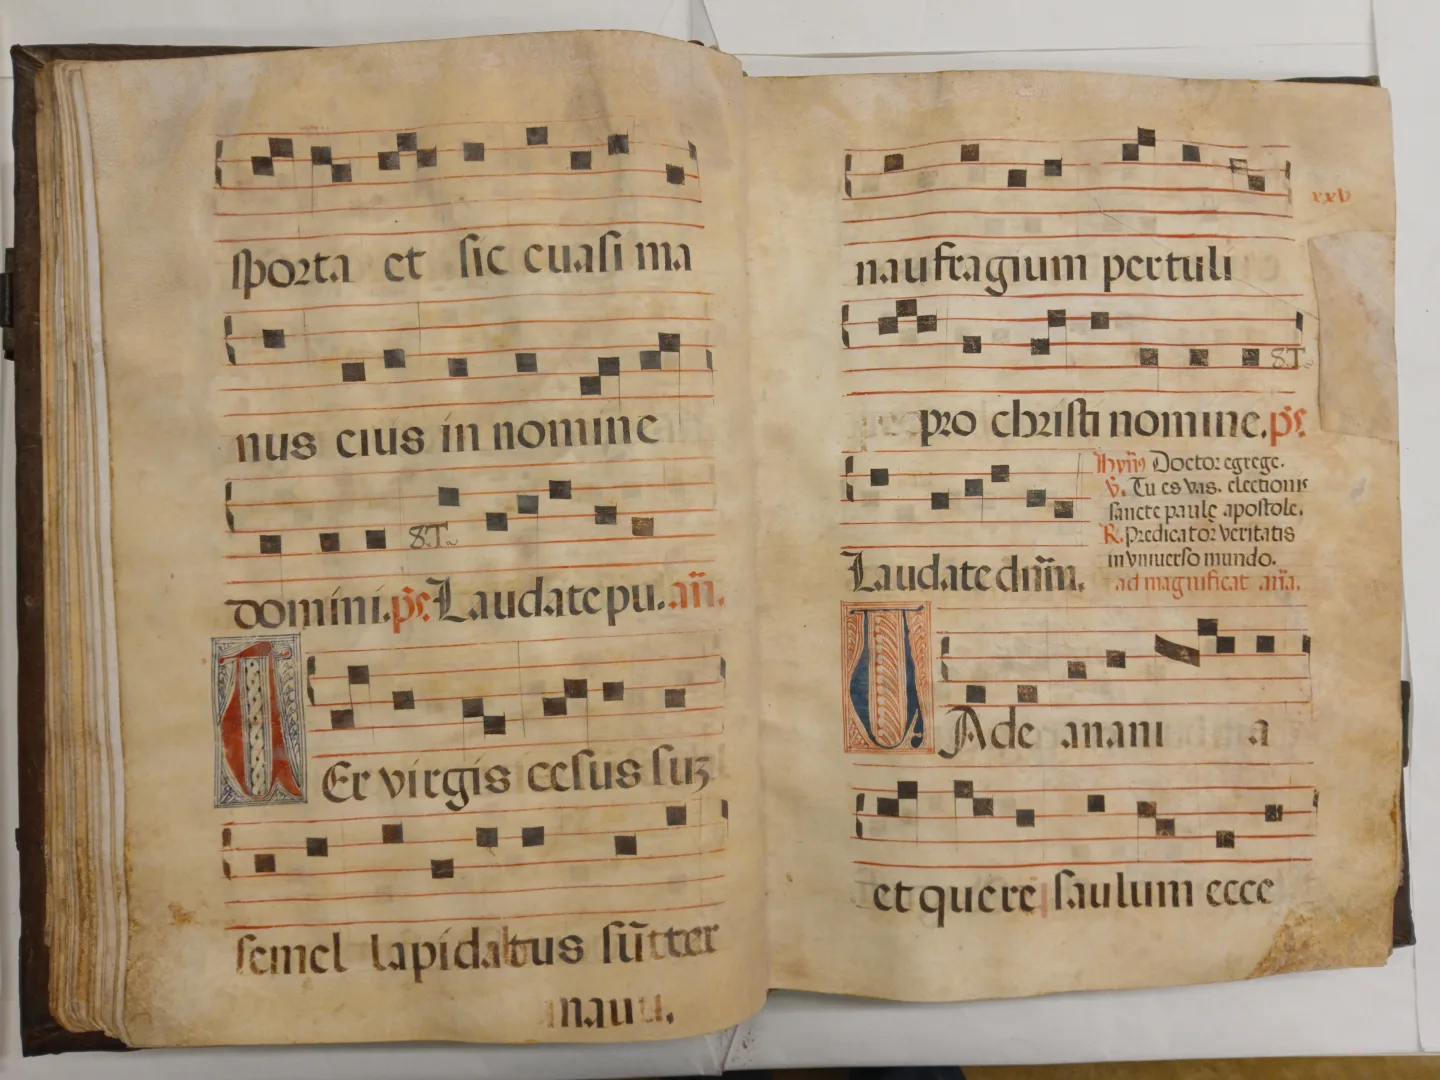 sporta et sic cuasi ma
nus eius in nomine
8.T.
domini. ps. Laudate pu. añ.
TEr virgis cesus suʒ
semel lapidatus sũ ter
naui.
xxv
naufragium pertuli
8.T.
pro christi nomine. ps.
Laudate dñm.
hym̃ Doctor egregie.
℣. Tu es vas. electionis
sancte paule apostole.
R. Predicator veritatis
in vniuerso mundo.
ad magnificat añа.
VAde anani a
et quere saulum ecce